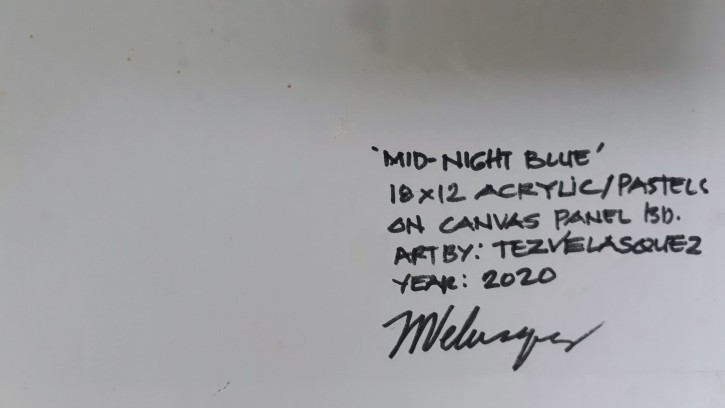 'MID-NIGHT BLUE'
18x12 ACRYLIC/PASTELS
ON CANVAS PANEL BD.
ART BY: TEZVELASQUEZ
YEAR: 2020